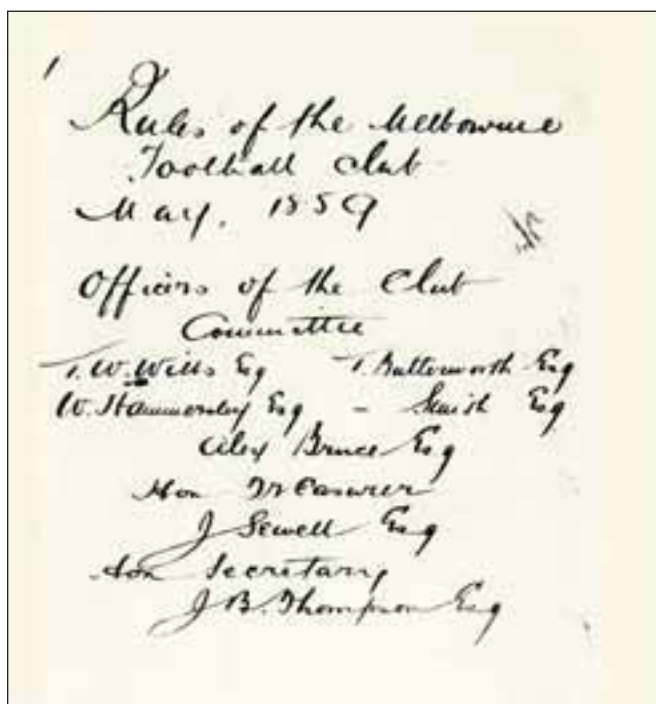 Rules of the Melbourne
Football Club
May. 1859
Officers of the Club
Committee
T. W. Wills Esq T. Butterworth Esq
W. Hammersley Esq - Smith Esq
Alex Bruce Esq
Hon Treasurer
J Sewell Esq
Hon Secretary
J B. Thompson Esq